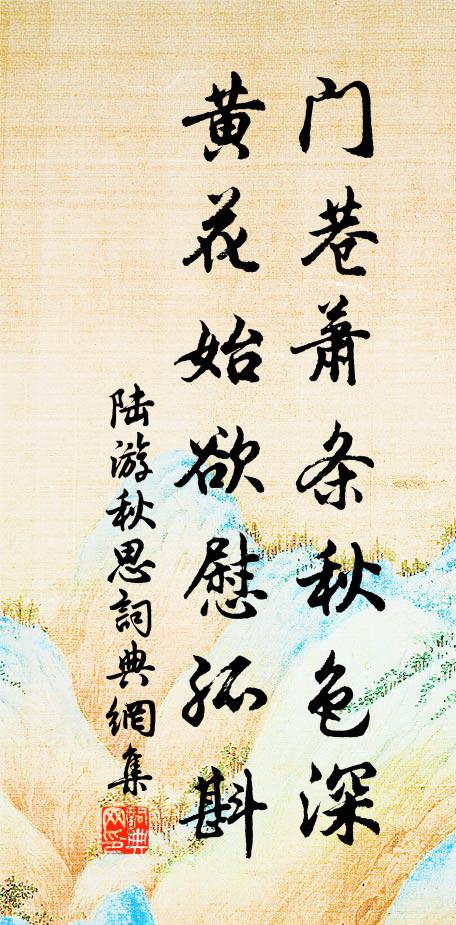 门巷萧条秋色深
黄花始欲慰孤斟
陆游秋思詞典網集
詞典